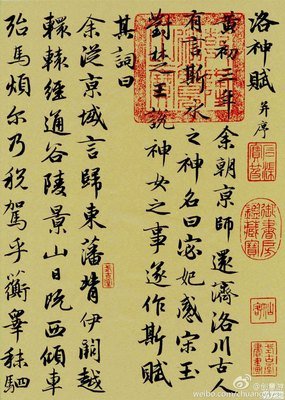 洛神賦 并序
黃初三年余朝京師還濟洛川古人
有言斯水之神名曰宓妃感宋玉
對楚王說神女之事遂作斯賦
其詞曰
余從京域言歸東藩背伊闕越
轘轅經通谷陵景山日既西傾車
殆馬煩爾乃稅駕乎蘅皋秣駟